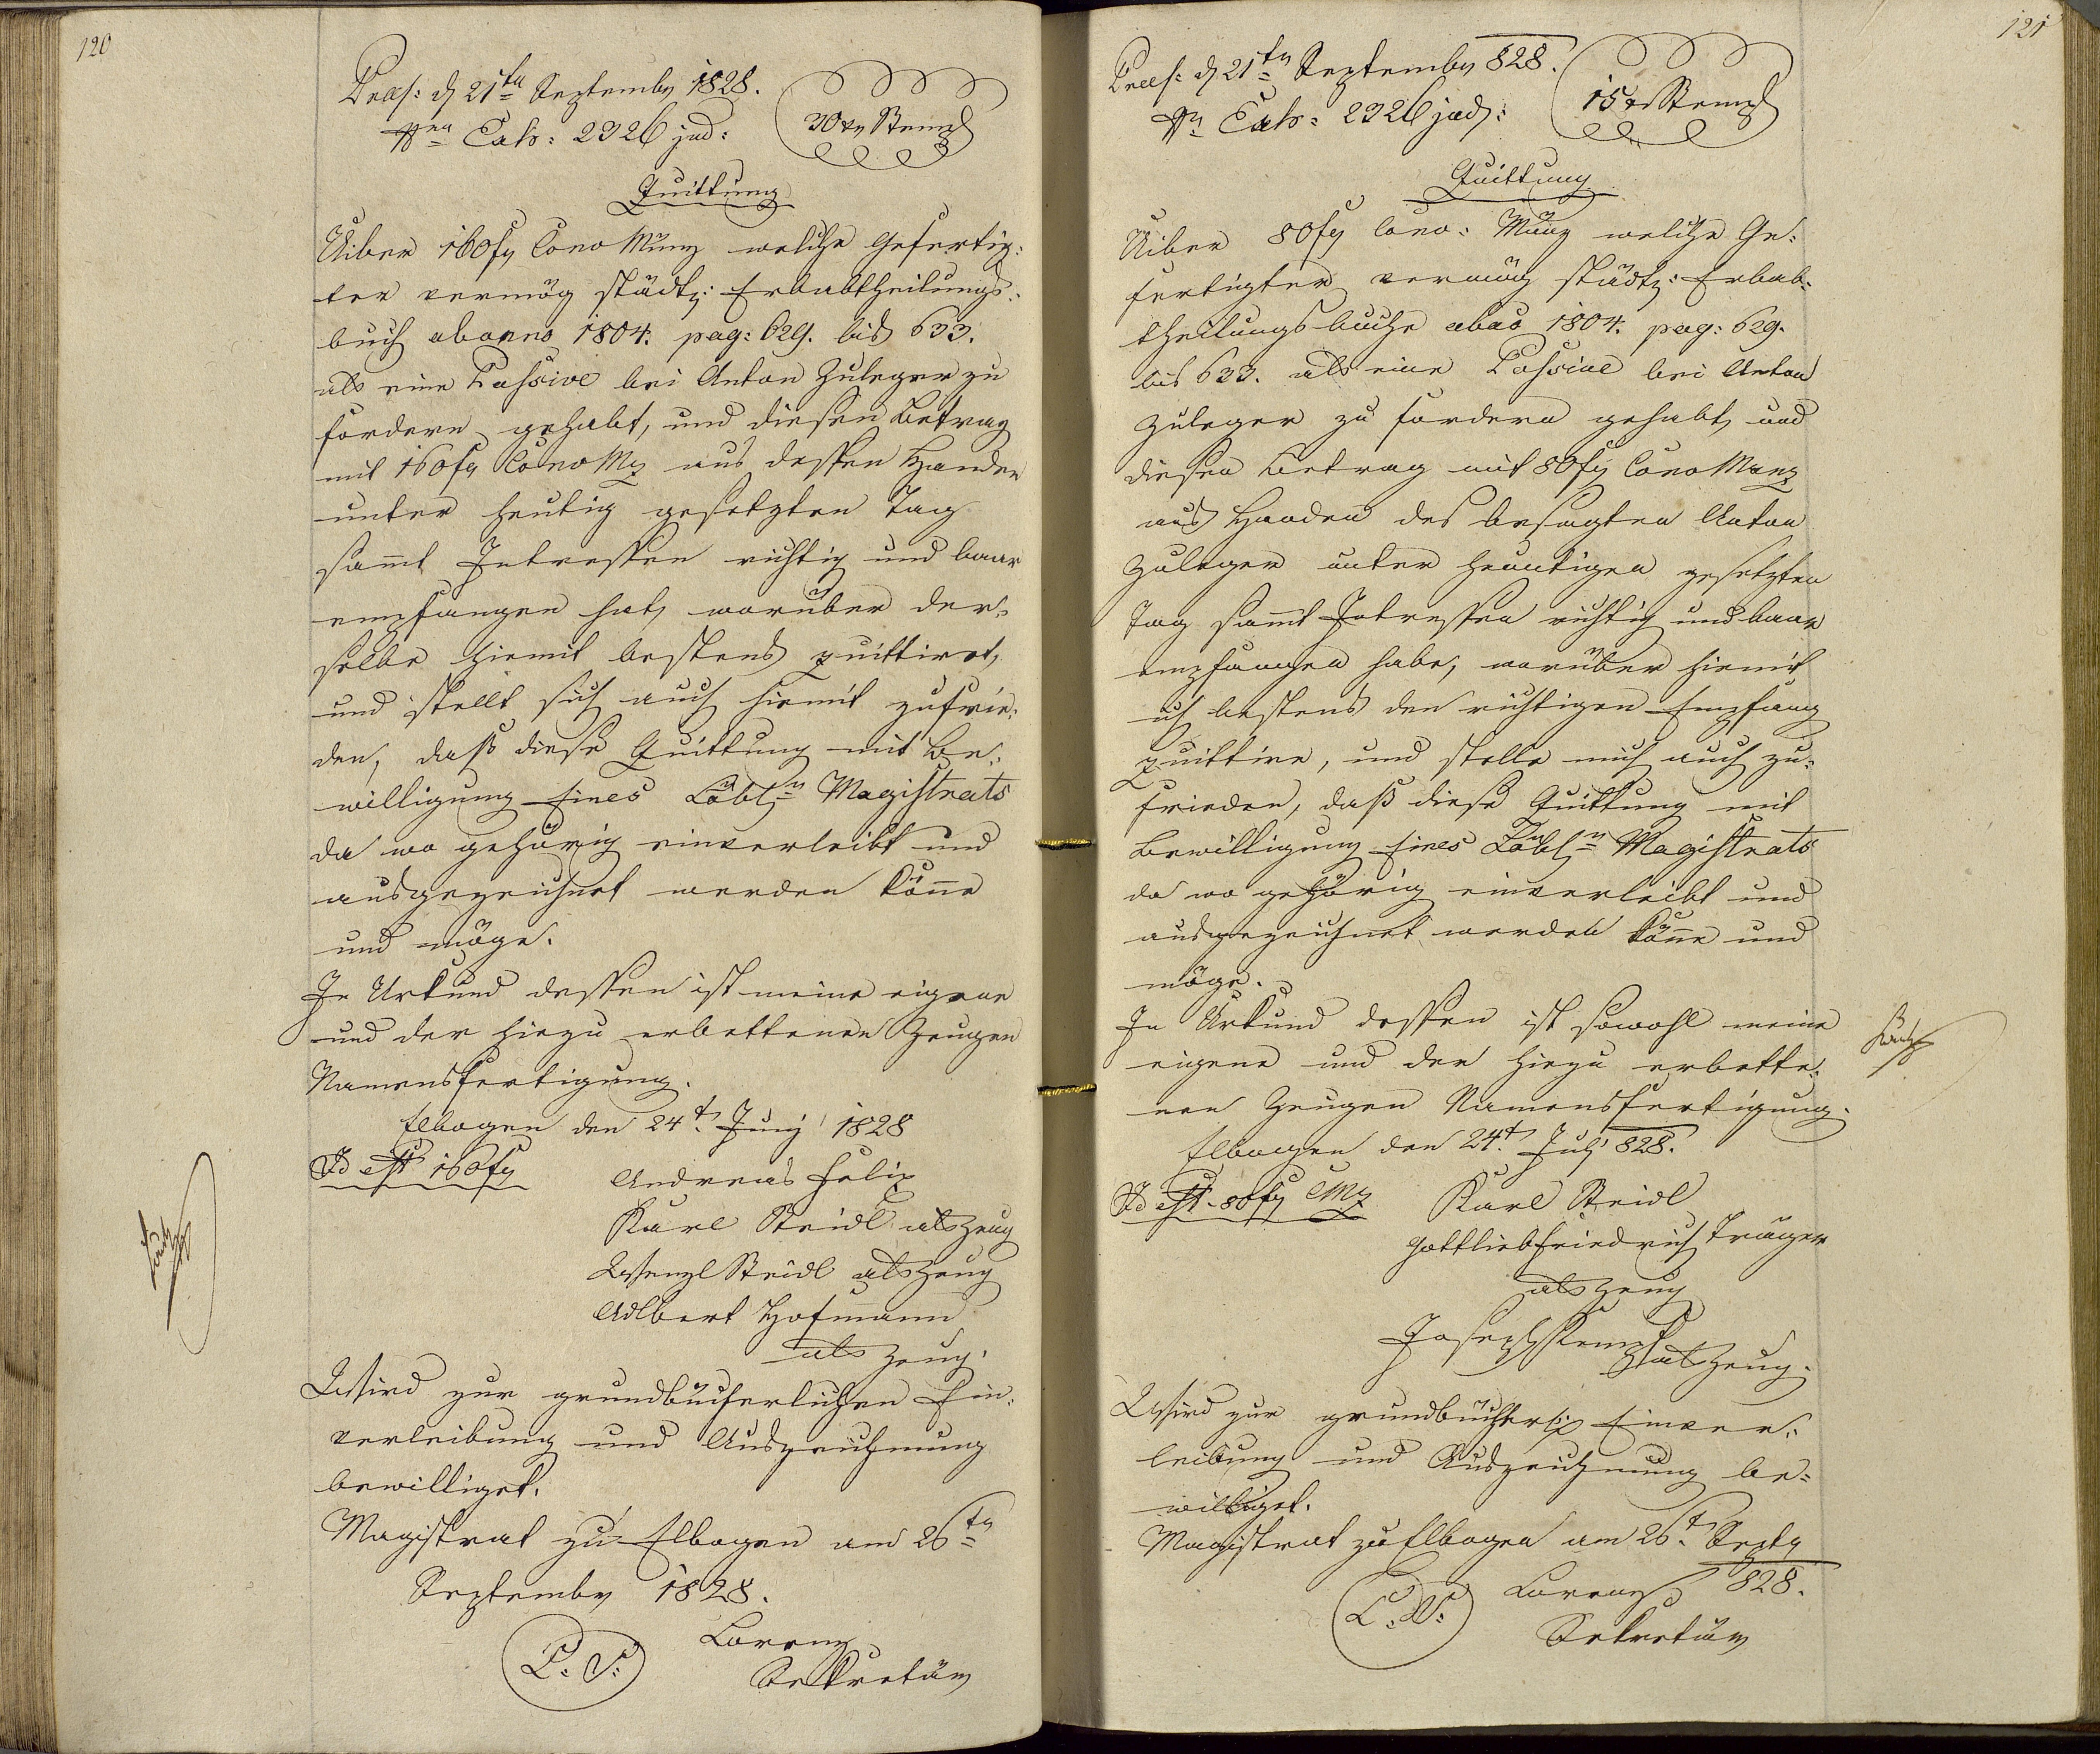 120
Præs: d 21ten Septembr 1828.
Nrn Exh: 2326 jud:
30 xr Stempl
Quittung
Uiber 160 fr Conv Münz welche Gefertig:
ter vermög städtl: Erbabtheilungs:
buch ab anno 1804. pag: 629. bis 633.
als eine Passive bei Anton Zuleger zu
fordern gehabt, und diesen Betrag
mit 160 fr Conv Mz aus dessen Handen
unter heutig gesetzten Tag
samt Intressen richtig und baar
empfangen hat, worüber der:
selbe hiemit bestens quittiret,
und stellt sich auch hiemit zufrie:
den, daß diese Quittung mit Be:
willigung Eines Löbln Magistrats
da wo gehörig einverleibt und
ausgezeichnet werden köne
und möge.
In Urkund dessen ist meine eigene
und der hiezu erbettenen Zeugen
Namensfertigung.
Elbogen den 24t. Juny 1828
Id est 160 fr
Andreas Felix
Karl Steidl als Zeug
Wenzl Steidl als Zeug
Adlbert Hofmann
als Zeug.
Wird zur grundbücherlichen Ein:
verleibung und Auszeichnung
bewilliget.
Magistrat zu Elbogen am 26tn
Septembr 1828.
L. S.
Lorenz
Sekretär
121
Præs: d 21tn Septembr 828.
Nrn Exh: 2326 jud:
15 xr Stempl
Quittung
Uiber 80 fr Conv: Münz welche Ge:
fertigter vermög städtl: Erbab:
theilungsbuche ab ao 1804. pag: 629.
bis 633. als eine Passive bei Anton
Zuleger zu fordern gehabt, und
diesen Betrag mit 80 fr Conv Münz
aus Handen des besagten Anton
Zuleger unter heutigen gesetzten
Tag samt Intressen richtig und baar
empfangen habe, worüber hiemit
ich bestens den richtigen Empfang
quittire, und stelle mich auch zu:
frieden, daß diese Quittung mit
Bewilligung Eines Löbln Magistrats
da wo gehörig einverleibt und
ausgezeichnet werden köne und
möge.
In Urkund dessen ist sowohl meine
eigene und der hiezu erbette:
nen Zeugen Namensfertigung.
Elbogen den 24t. July 828.
Id est 80 fr CMz
Karl Steidl
Gottlieb Friedrich Träger
als Zeug
Joseph Kempf als Zeug.
Wird zur grundbücherl: Einver:
leibung und Auszeichnung be:
williget.
Magistrat zu Elbogen am 26t. Septr
828.
L. S.
Lorenz
Sekretär